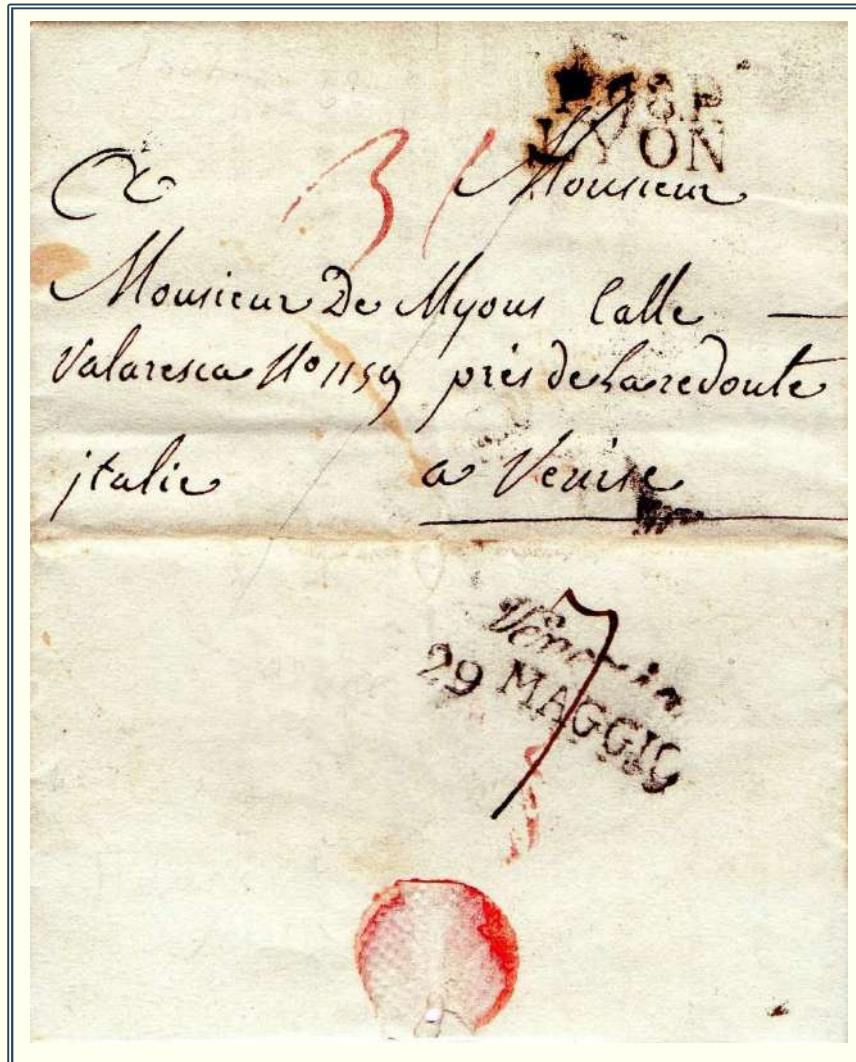 P.68.P.
LYON
A Monsieur
31
Monsieur De Myons Calle —
Valaresca N° 1159 près de La redoute
italie a Venise
Venezia
29 MAGGIO
7